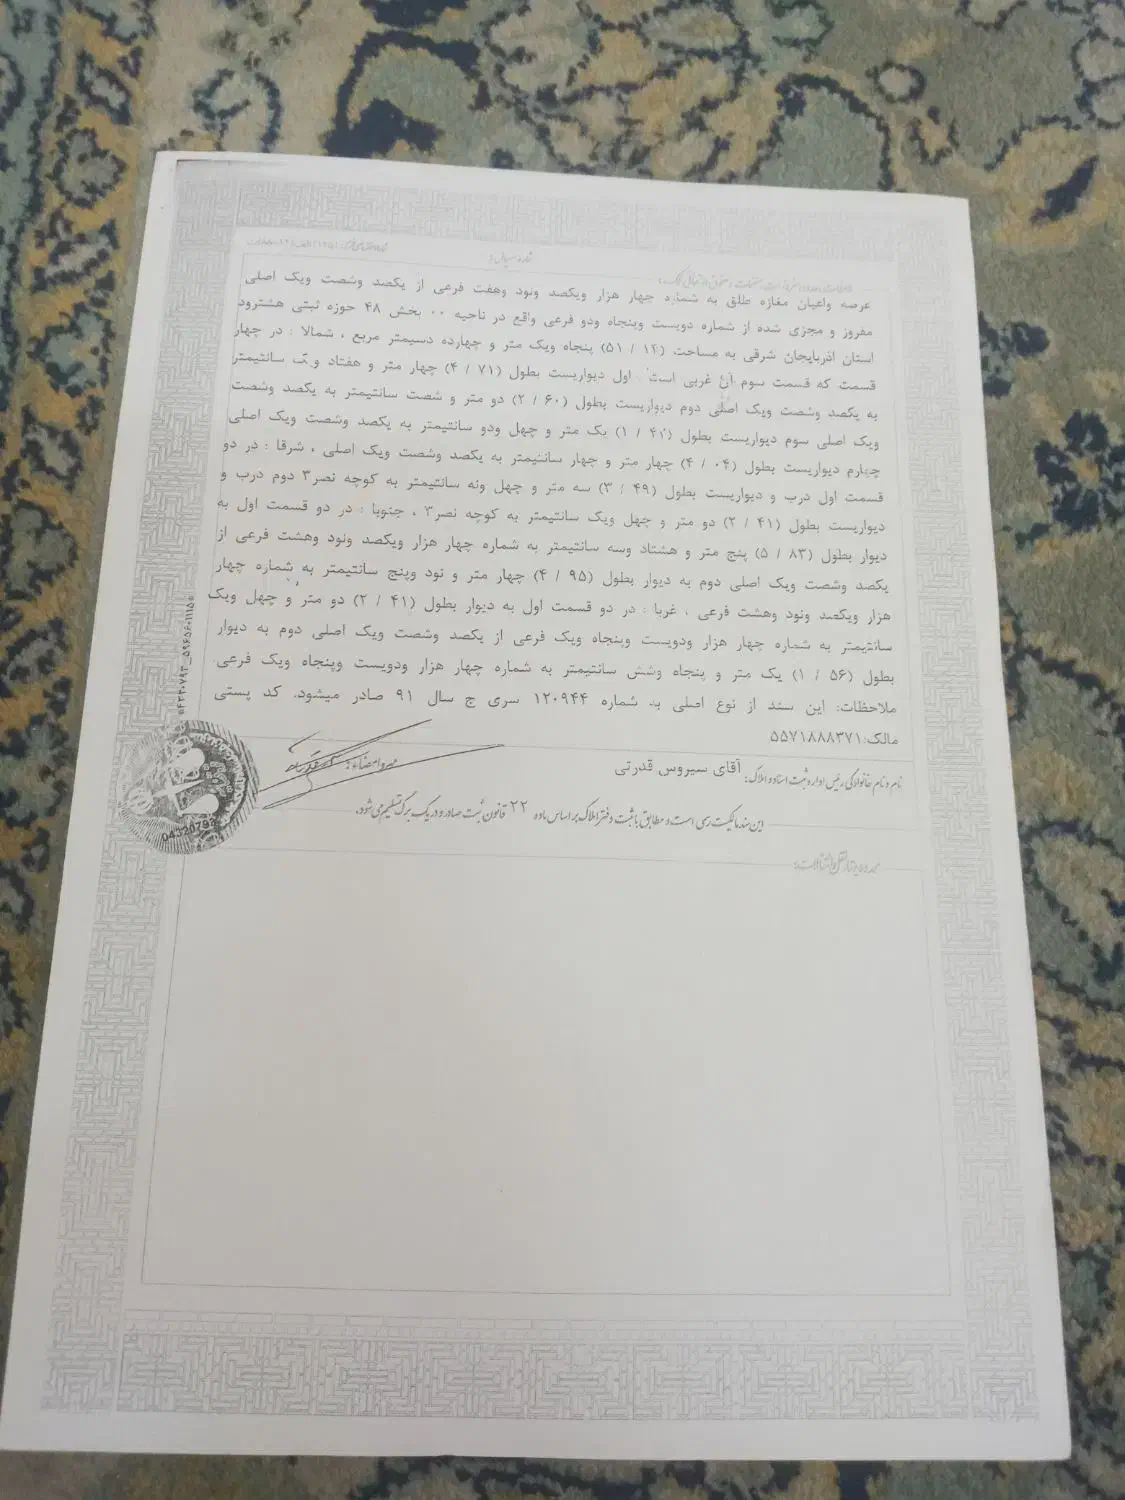 عرصه واعیان مغازه طلق به شماره چهار هزار ویکصد ونود وهفت فرعی از یکصد وشصت ویک اصلی
مفروز و مجزی شده از شماره دویست وپنجاه ودو فرعی واقع در ناحیه ۰۰ بخش ۴۸ حوزه ثبتی هشترود
استان اذربایجان شرقی به مساحت (۱۴ / ۵۱) پنجاه ویک متر و چهارده دسیمتر مربع ، شمالا : در چهار
قسمت که قسمت سوم آن غربی است . اول دیواریست بطول (۷۱ / ۴) چهار متر و هفتاد ویک سانتیمتر
به یکصد وشصت ویک اصلی دوم دیواریست بطول (۶۰ / ۲) دو متر و شصت سانتیمتر به یکصد وشصت
ویک اصلی سوم دیواریست بطول (۴۲ / ۱) یک متر و چهل ودو سانتیمتر به یکصد وشصت ویک اصلی
چهارم دیواریست بطول (۰۴ / ۴) چهار متر و چهار سانتیمتر به یکصد وشصت ویک اصلی ، شرقا : در دو
قسمت اول درب و دیواریست بطول (۴۹ / ۳) سه متر و چهل ونه سانتیمتر به کوچه نصر۳ دوم درب و
دیواریست بطول (۴۱ / ۲) دو متر و چهل ویک سانتیمتر به کوچه نصر۳ ، جنوبا : در دو قسمت اول به
دیوار بطول (۸۳ / ۵) پنج متر و هشتاد وسه سانتیمتر به شماره چهار هزار ویکصد ونود وهشت فرعی از
یکصد وشصت ویک اصلی دوم به دیوار بطول (۹۵ / ۴) چهار متر و نود وپنج سانتیمتر به شماره چهار
هزار ویکصد ونود وهشت فرعی ، غربا : در دو قسمت اول به دیوار بطول (۴۱ / ۲) دو متر و چهل ویک
سانتیمتر به شماره چهار هزار ودویست وپنجاه ویک فرعی از یکصد وشصت ویک اصلی دوم به دیوار
بطول (۵۶ / ۱) یک متر و پنجاه وشش سانتیمتر به شماره چهار هزار ودویست وپنجاه ویک فرعی.
ملاحظات: این سند از نوع اصلی به شماره ۱۲۰۹۴۴ سری ج سال ۹۱ صادر میشود. کد پستی
مالک:۵۵۷۱۸۸۸۳۷۱
مهر و امضاء:
نام و نام خانوادگی رئیس اداره ثبت اسناد و املاک: آقای سیروس قدرتی
04320793
این سند مالکیت رسمی است و مطابق با ثبت دفتر املاک بر اساس ماده ۲۲ قانون ثبت صادر و در یک برگ تسلیم می شود.